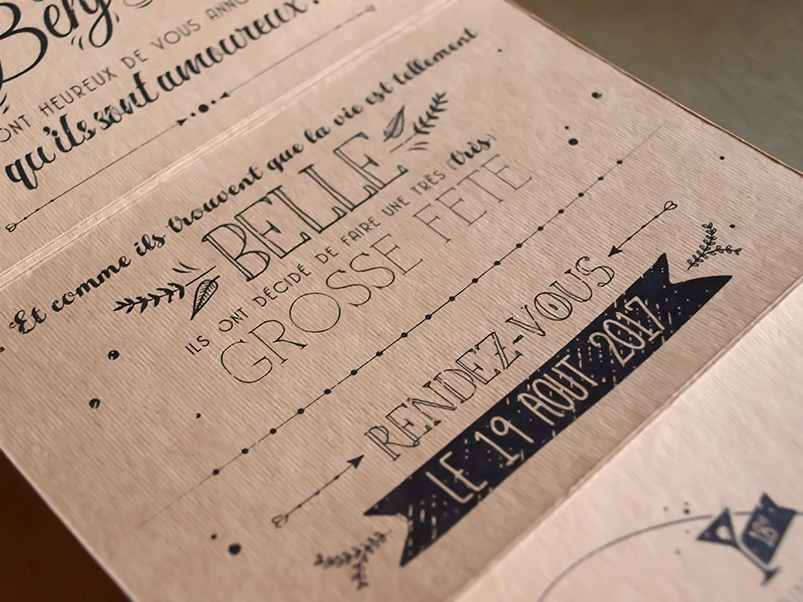 Benj
ONT HEUREUX DE VOUS ANNO
qu'ils sont amoureux!
Et comme ils trouvent que la vie est tellement
BELLE
ILS ONT DÉCIDÉ DE FAIRE UNE TRÈS (très)
GROSSE FÊTE
RENDEZ-VOUS
LE 19 AOUT 2017
18H